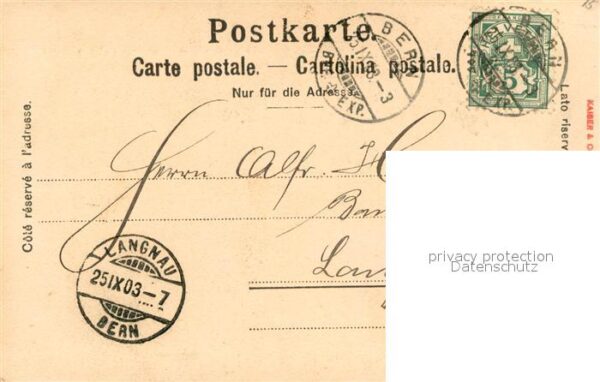 Postkarte.
Carte postale. — Cartolina postale.
Nur für die Adresse.
Côté réservé à l'adresse.
Lato riserv
KAISER & C
BERN
BERN
5
Herrn Alfr. H
LANGNAU
25 IX 03 – 7
BERN
privacy protection
Datenschutz